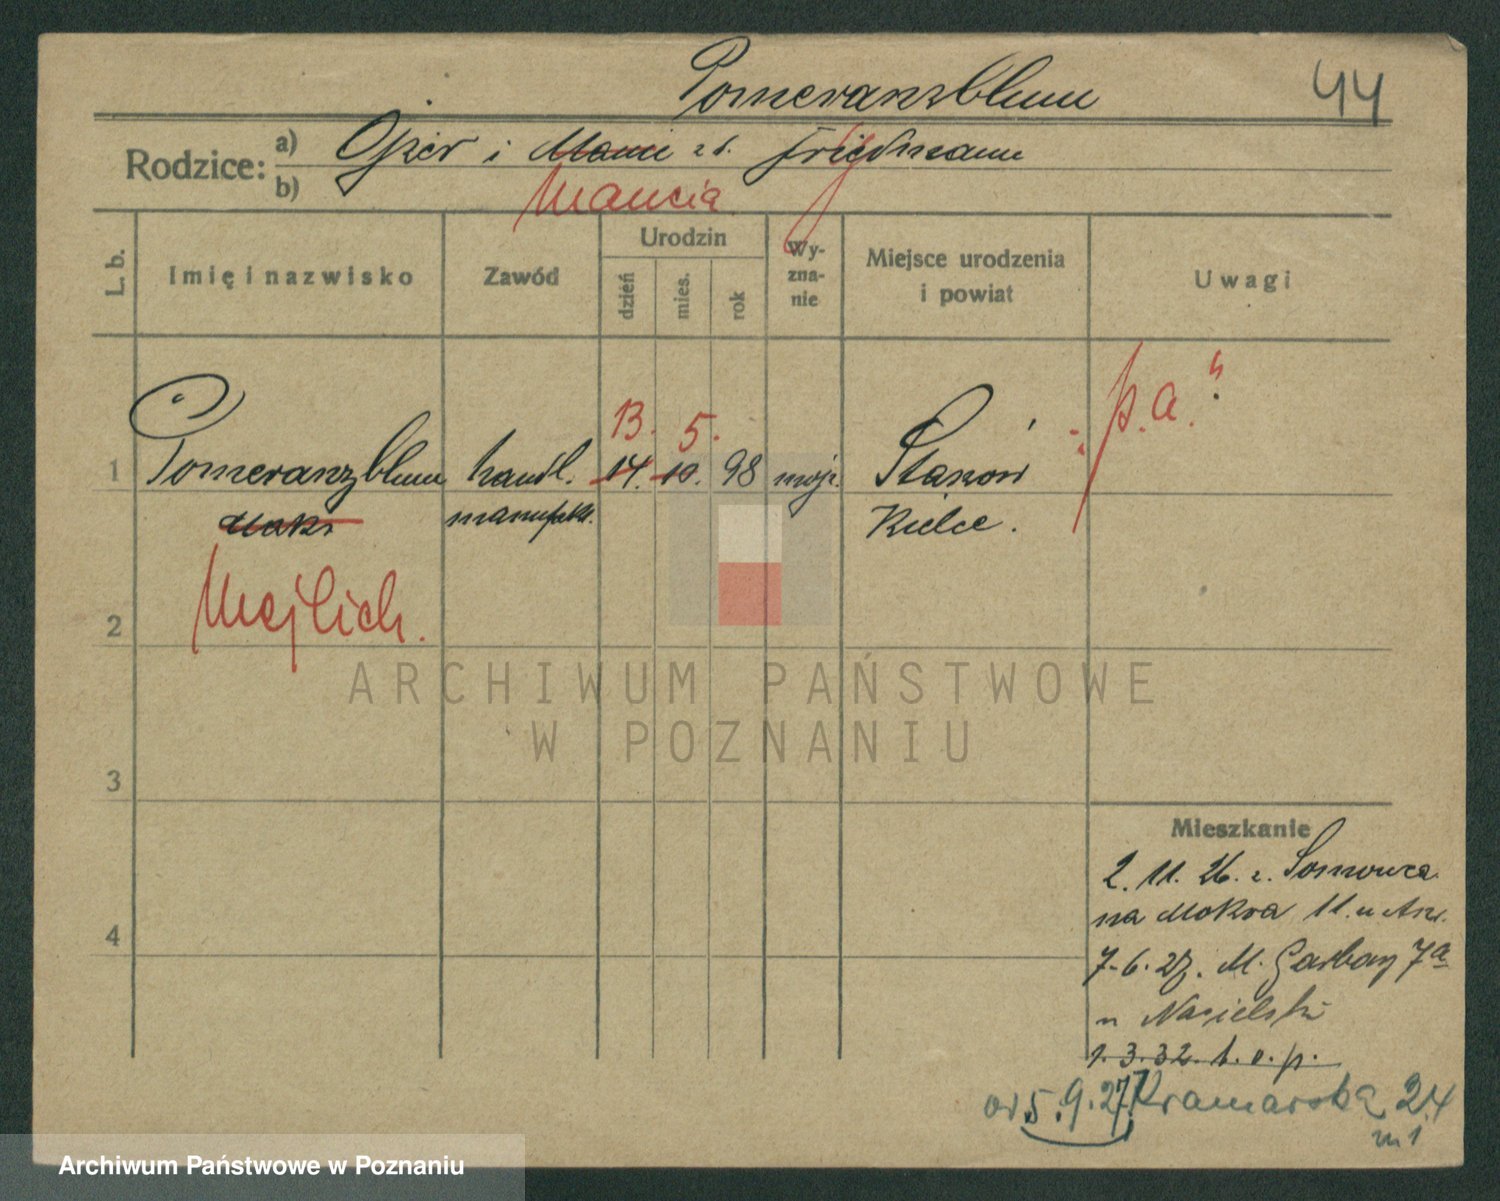 Pomeranzblum 44
Rodzice: a) Ojzer i Manie z d. Friedmann
b) Mancia
L. b. Imię i nazwisko Zawód Urodzin dzień mies. rok Wy-zna-nie Miejsce urodzenia i powiat Uwagi
13. 5. "p.a."
1 Pomeranzblum handl. 14. 10. 98 mojż. Stanow
Maks manufakt. Kielce.
2 Mejlich.
ARCHIWUM PAŃSTWOWE
W POZNANIU
3
Mieszkanie
2. 11. 26. z. Sosnowca
na Mokra 11. u
4
7. 6. 27. M. Garbary 7a
u Nasielski
1. 3. 32. b. o. p.
od 5. 9. 27. Kramarska 24
m 1
Archiwum Państwowe w Poznaniu